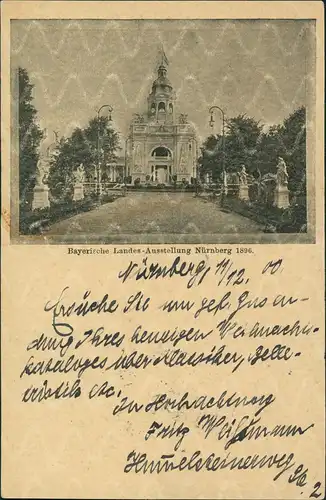 Bayerische Landes-Ausstellung Nürnberg 1896.
Nürnberg, 11/12. 00.
Ersuche Sie um gef. Zusen-
dung Ihres heurigen Weihnachts-
kataloges über Klassiker, Belle-
tristik etc.
In Hochachtung
Fritz
Himmelsteinerweg